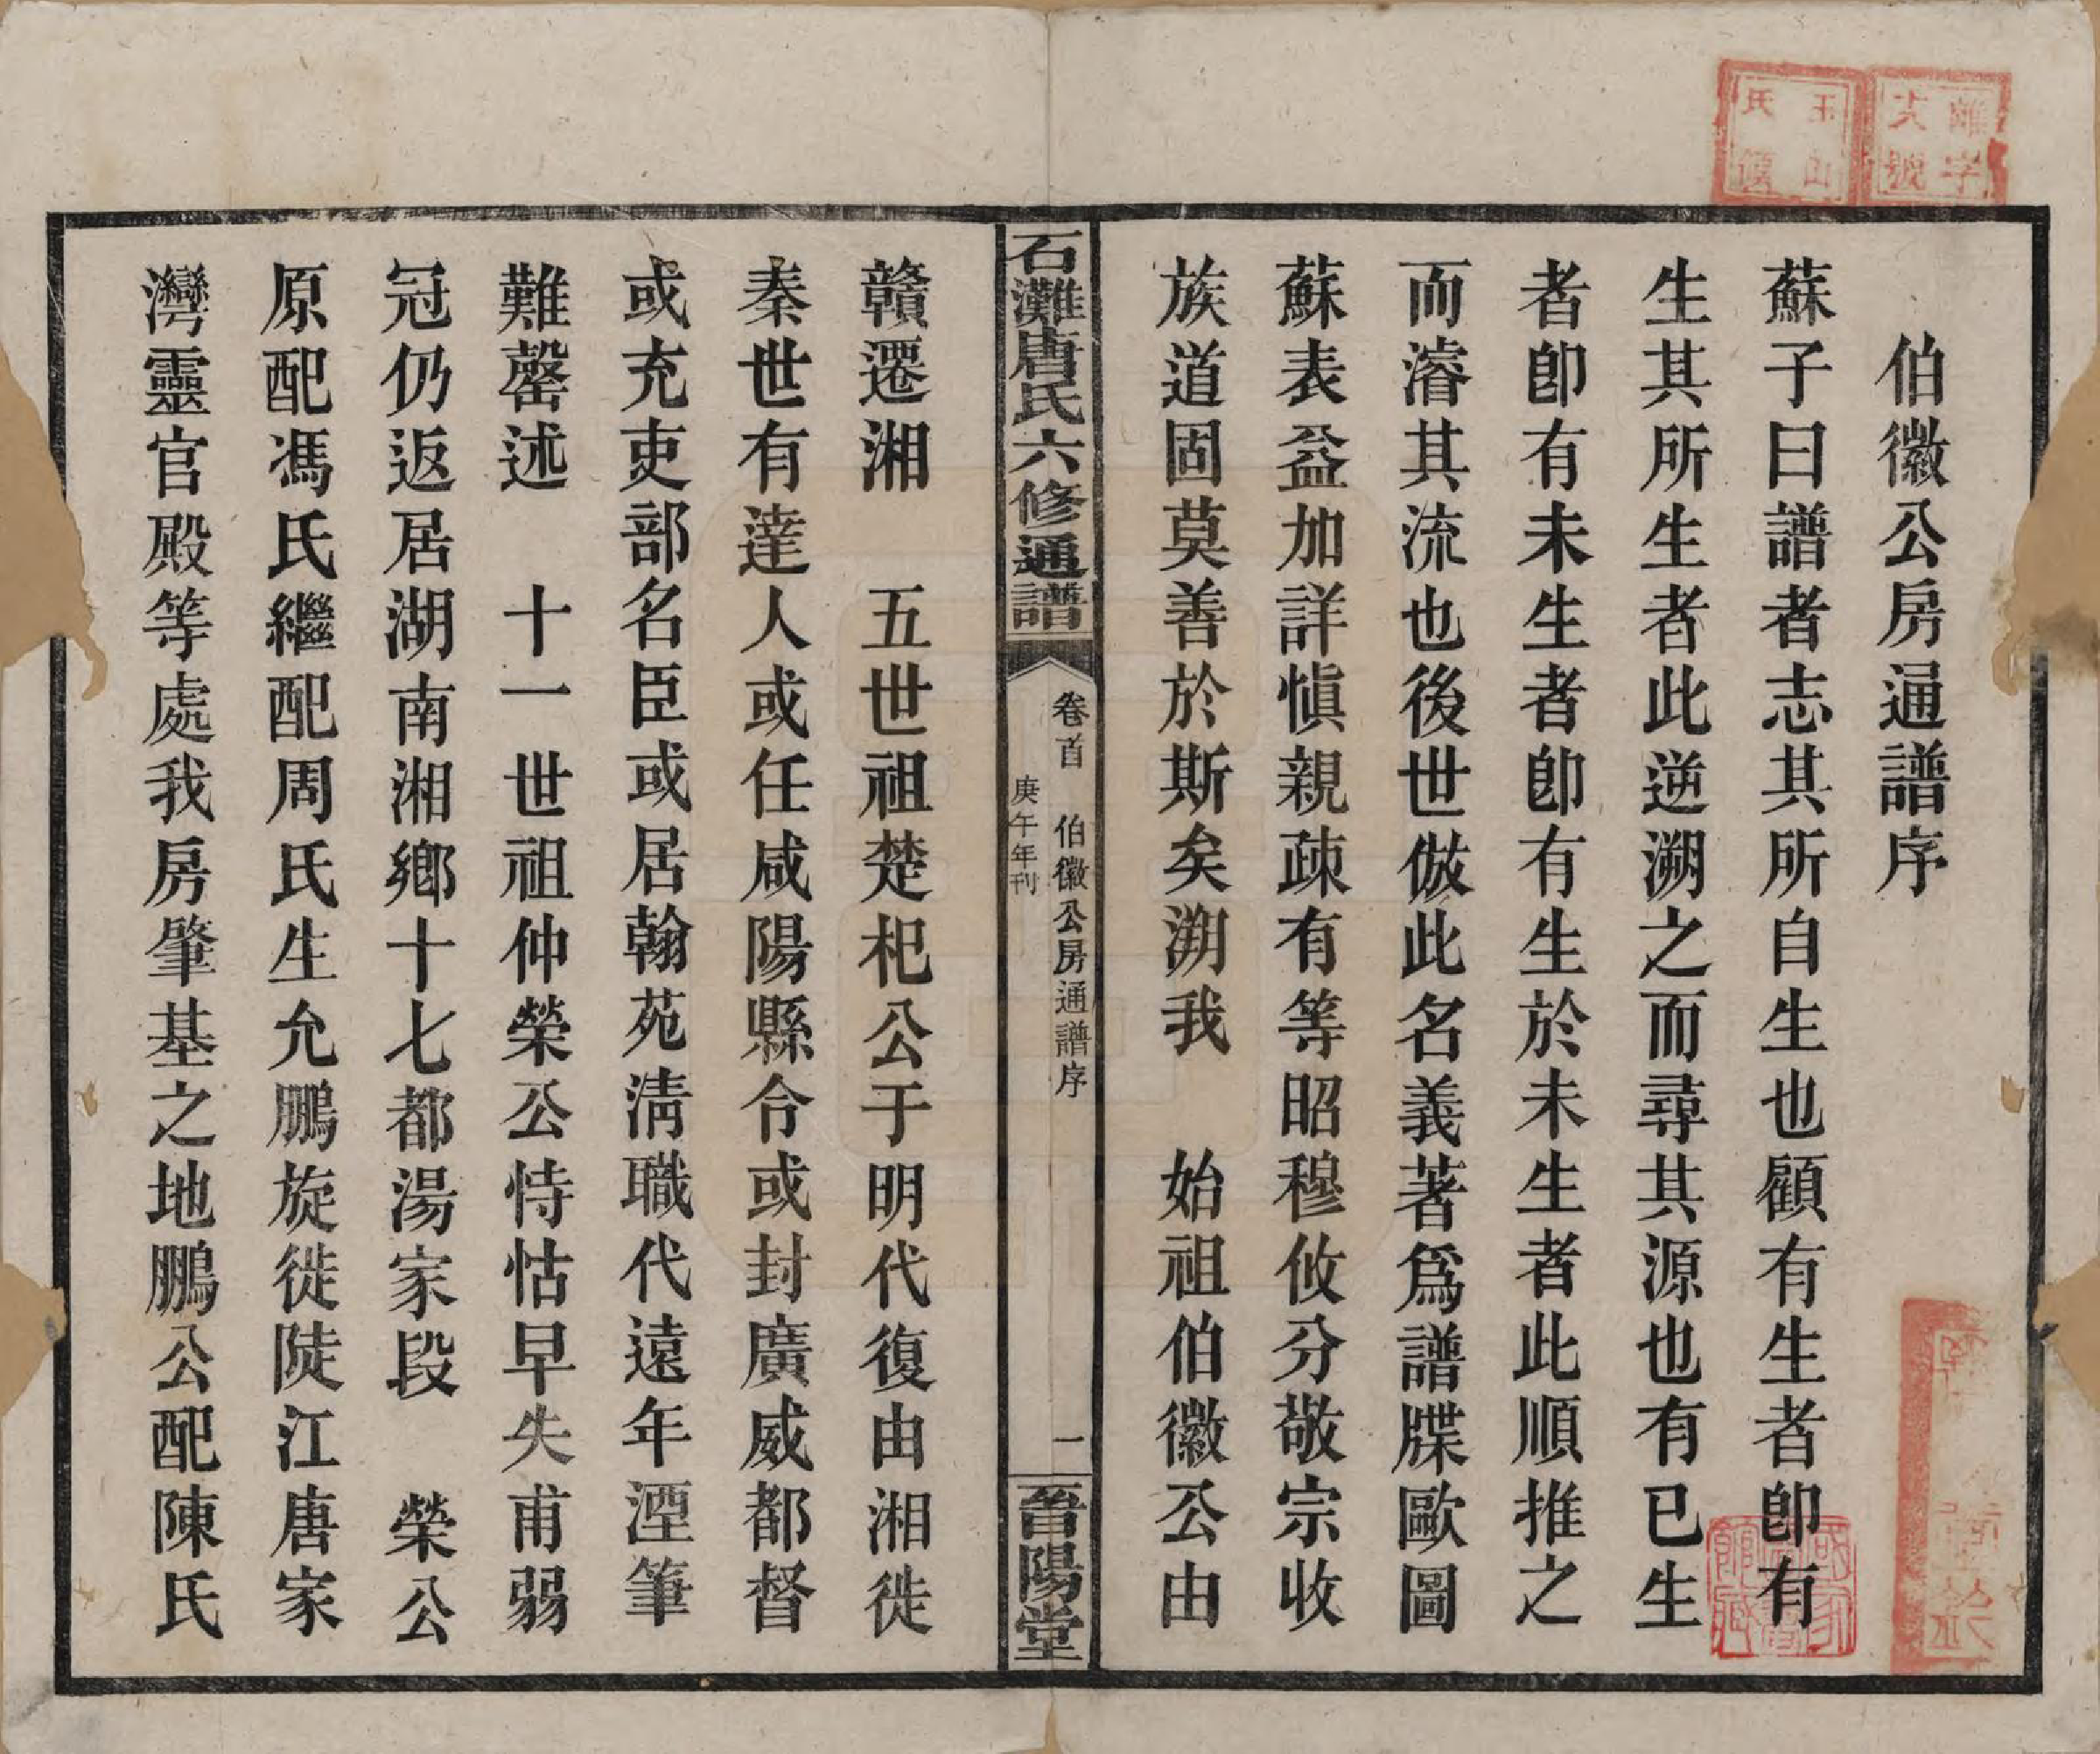 伯徽公房通譜序
蘇子曰譜者志其所自生也顧有生者卽有
生其所生者此逆溯之而尋其源也有已生
者卽有未生者卽有生於未生者此順推之
而濬其流也後世倣此名義著爲譜牒歐圖
蘇表益加詳愼親疎有等昭穆攸分敬宗收
族道固莫善於斯矣溯我　始祖伯徽公由
石灘唐氏六修通譜
卷首　伯徽公房通譜序
庚午年刊
一
晉陽堂
贛遷湘　五世祖楚杞公于明代復由湘徙
秦世有達人或任咸陽縣令或封廣威都督
或充吏部名臣或居翰苑淸職代遠年湮筆
難罄述　十一世祖仲榮公恃怙早失甫弱
冠仍返居湖南湘鄉十七都湯家段　榮公
原配馮氏繼配周氏生允鵬旋徙陡江唐家
灣靈官殿等處我房肇基之地鵬公配陳氏